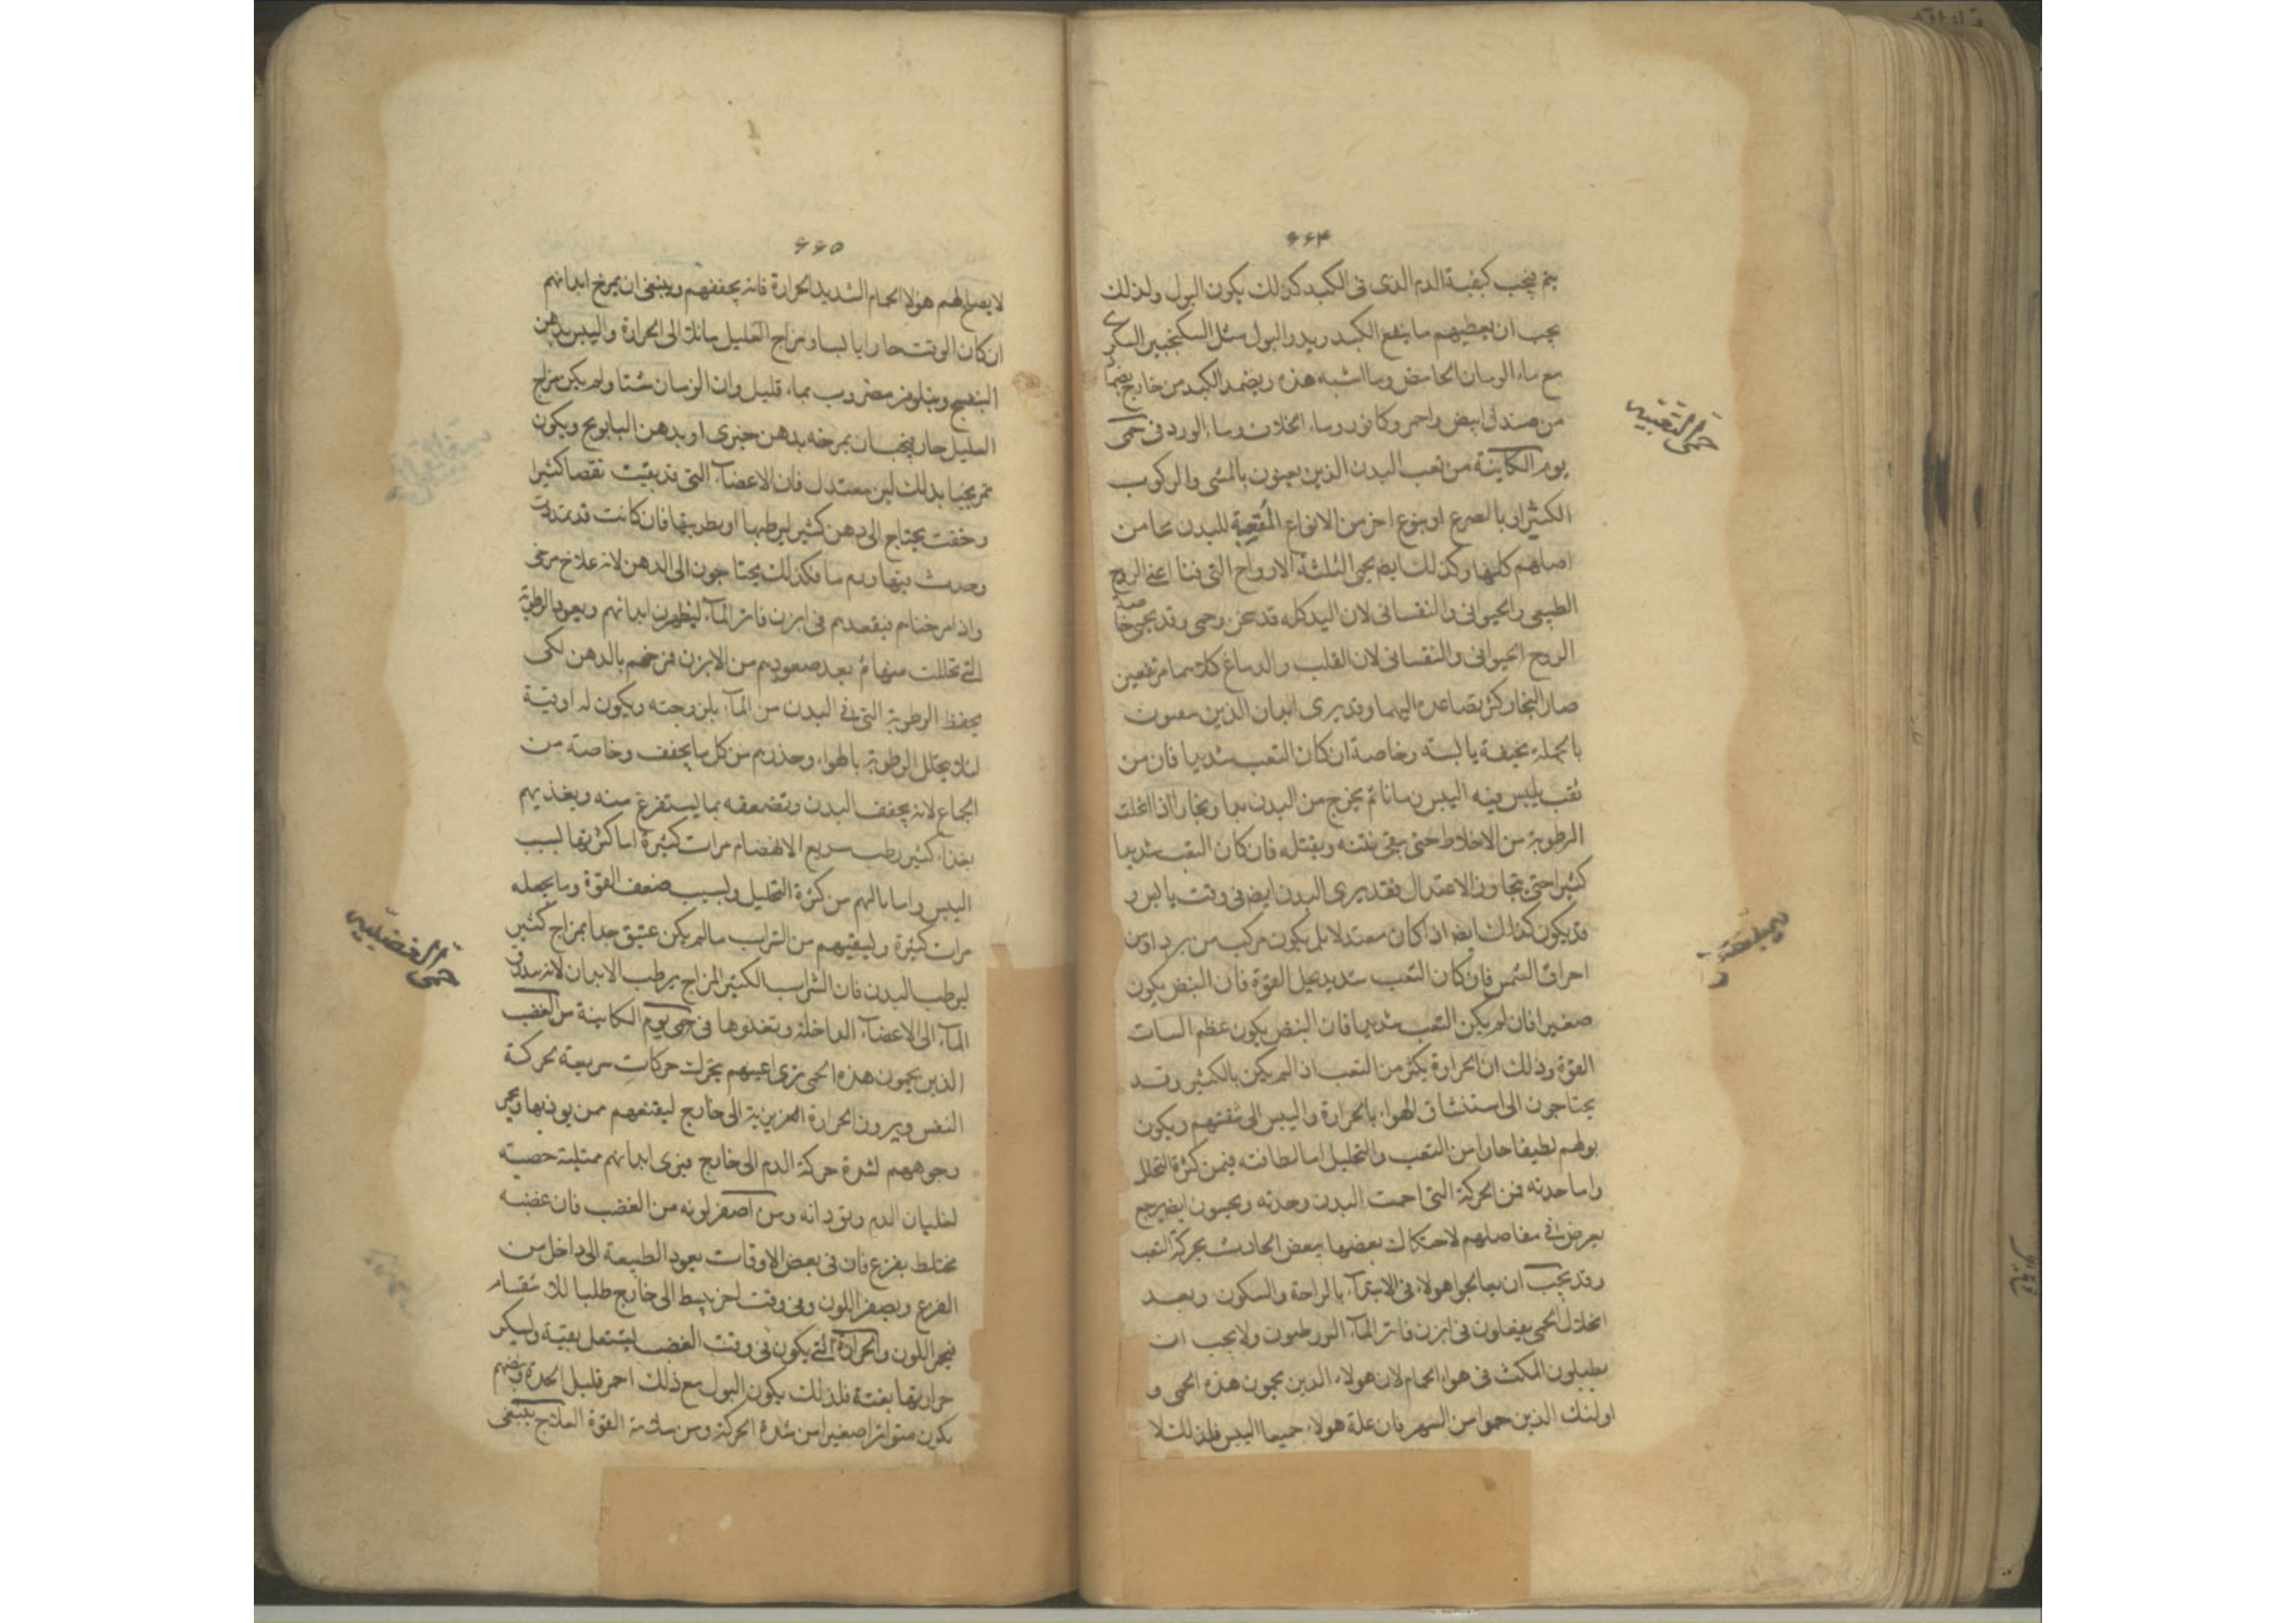 ۶۶۴
يجب كيفية الدم الذى فى الكبد كذلك يكون البول ولذلك
يجب ان يعطيهم ما ينفع الكبد ويدر البول مثل السكنجبين السكرى
مع ماء الرمان الحامض وما اشبه هذه ويضمد الكبد من خارج بضماد
من صندل ابيض واحمر وكافور وماء الخلاف وماء الورد فى حمى
يوم الكاينة من تعب البدن الذين يعيون بالمشى والركوب
الكثير او بالصرع او بنوع اخر من الانواع المتعبة للبدن
كلها وكذلك ايض يحمى الثلثة الارواح التى اعنى الروح
الطبيعى والحيوانى والنفسانى لان البدن كله قد سخن وحمى وقد يحمى خاصة
الروح الحيوانى والنفسانى لان القلب والدماغ كلاهما مرتفعين
صار البخار كثر تصاعده اليهما وقد يرى ابدان الذين
بالجملة نحيفة يابسة وخاصة ان كان التعب شديدا فان من
تعب يلبس فيه اليبس زمانا ثم يخرج من البدن بخارا اذا انحلت
الرطوبة من الاخلاط حتى فان كان التعب شديدا
كثيرا حتى يتجاوز الاعتدال فقد يرى البدن ايض فى وقت يابس و
قد يكون كذلك ايض اذا كان معتدلا بل يكون مركب من برد او من
احراق الشمس فان كان التعب شديد يحل القوة فان النبض يكون
صغيرا فان لم يكن التعب شديدا فان النبض يكون عظم
القوة وذلك ان الحرارة يكثر من التعب اذا لم يكن بالكثير وقد
يحتاجون الى استنشاق الهواء بالحرارة واليبس الى ويكون
بولهم لطيفا حارا من التعب والتحليل اما لطافته فمن كثرة التحلل
واما حدته فمن الحركة التى احمت البدن وحدته ويحسون ايض
يعرض فى مفاصلهم لاحتكاك بعضها ببعض الحادث بحركة التعب
وقد يجب ان يعالجوا هولاء فى الابتداء بالراحة والسكون وبعد
انحلال الحمى فى ابزن فاتر الماء ولا يجب ان
يطيلون المكث فى هواء الحمام لان هولاء الذين يحمون هذه الحمى و
اولئك الذين حموا من السهر فان علة هولاء جميعا اليبس فلذلك لا
حمى التعبية
۶۶۵
لا يصلح لهم هولاء الحمام الشديد الحرارة فانه يجففهم وينبغى ان يمرخ ابدانهم
ان كان الوقت حارا يابسا ومزاج العليل مائلا الى الحرارة واليبس بدهن
البنفسج ونيلوفر مضروب بماء قليل وان الزمان شتا ولم يكن مزاج
العليل حار فيجب ان يمرخه بدهن خيرى او بدهن البابونج ويكون
تمريخا بدلك لين معتدل فان الاعضاء التى قد نقصا كثيرا
وجفت يحتاج الى دهن كثير ليرطبها فان كانت قد تمددت
وحدث فيها ورم ما فكذلك يحتاجون الى الدهن لانه علاج مرخى
واذا مرخناهم فيقعدهم فى ابزن فاتر الماء ليرطب ابدانهم ويعود الرطوبة
التى تحللت منها ثم بعد صعودهم من الابزن فمرخهم بالدهن لكى
يحفظ الرطوبة التى فى البدن من الماء بلزوجته ويكون له اوقية
لئلا يحلل الرطوبة بالهواء وحذرهم من كل ما يجفف وخاصة من
الجماع لانه يجفف البدن وتضعفه بما يستفرغ منه ويغذيهم
بغذاء كثير رطب سريع الانهضام مرات كثيرة اما كثرتها لسبب
اليبس واما ما نالهم من كثرة التحليل ولسبب ضعف القوة وما يجعله
مرات كثيرة ويسقيهم من الشراب ما لم يكن عتيق جدا بمزاج كثير
ليرطب البدن فان الشراب الكثير المزاج يرطب الابدان
الماء الى الاعضاء الداخلة وتغذوها فى حمى يوم الكاينة من الغضب
الذين يحمون هذه الحمى ترى اعينهم يتحرك حركات سريعة لحركة
النفس وبروز الحرارة الغريزية الى خارج ممن يوذيها ويحمر
وجوههم لشدة حركة الدم الى خارج فيرى ابدانهم ممتلية خصبة
لغليان الدم وثورانه ومن اصفر لونه من الغضب فان غضبه
مختلط بفزع فان فى بعض الاوقات يعود الطبيعة الى داخل من
الفزع ويصفر اللون وفى وقت اخر ينبسط الى خارج طلبا للانتقام
فيحمر اللون والحرارة التى يكون فى وقت الغضب يشتعل
حرارتها بغتة فلذلك يكون البول مع ذلك احمر قليل الحدة ونبضهم
يكون متواترا صغيرا من شدة الحركة ومن سلامة القوة العلاج ينبغى
حمى الغضبية